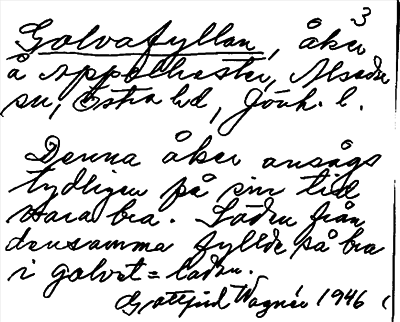 3
Golvafyllan, åker
å Appelhester, Alseda
sn, Östra hd, Jönk. l.
Denna åker ansågs
tydligen på sin tid
vara bra. Säden från
densamma fyllde så bra
i golvet = ladan.
Gottfrid Wagnér 1946